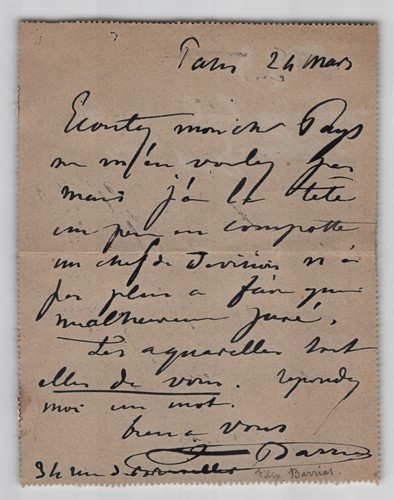 Paris 24 mars
Ecoutez mon cher Pays
ne m'en voulez pas
mais j'ai la tête
un peu en compotte
un chef de Division n'a
pas plus a faire qu'un
malheureux juré.
Les aquarelles sont
elles de vous. repondez
moi un mot.
bien a vous
F Barrias
34 rue de Bruxelles
Félix Barrias